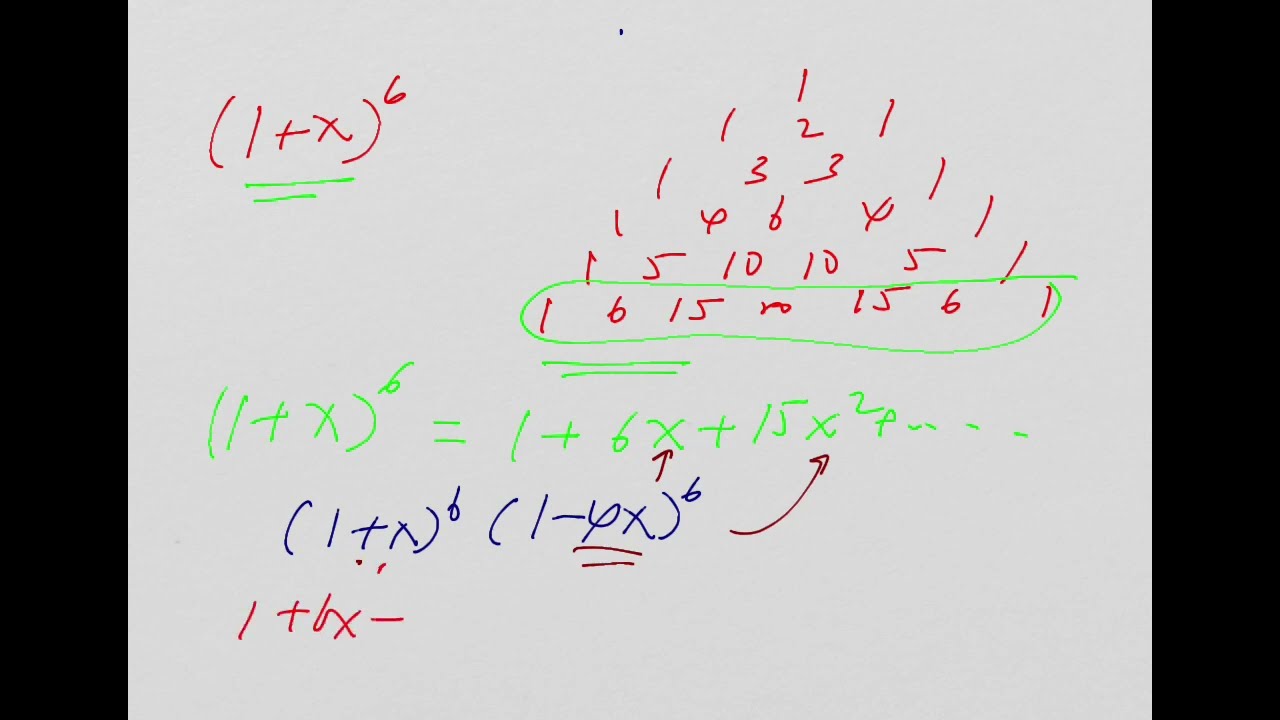 (1+x)^6
1
1 2 1
1 3 3 1
1 4 6 4 1
1 5 10 10 5 1
1 6 15 20 15 6 1
(1+x)^6 = 1 + 6x + 15x^2 + ....
(1+x)^6 (1-4x)^6
1 + 6x -